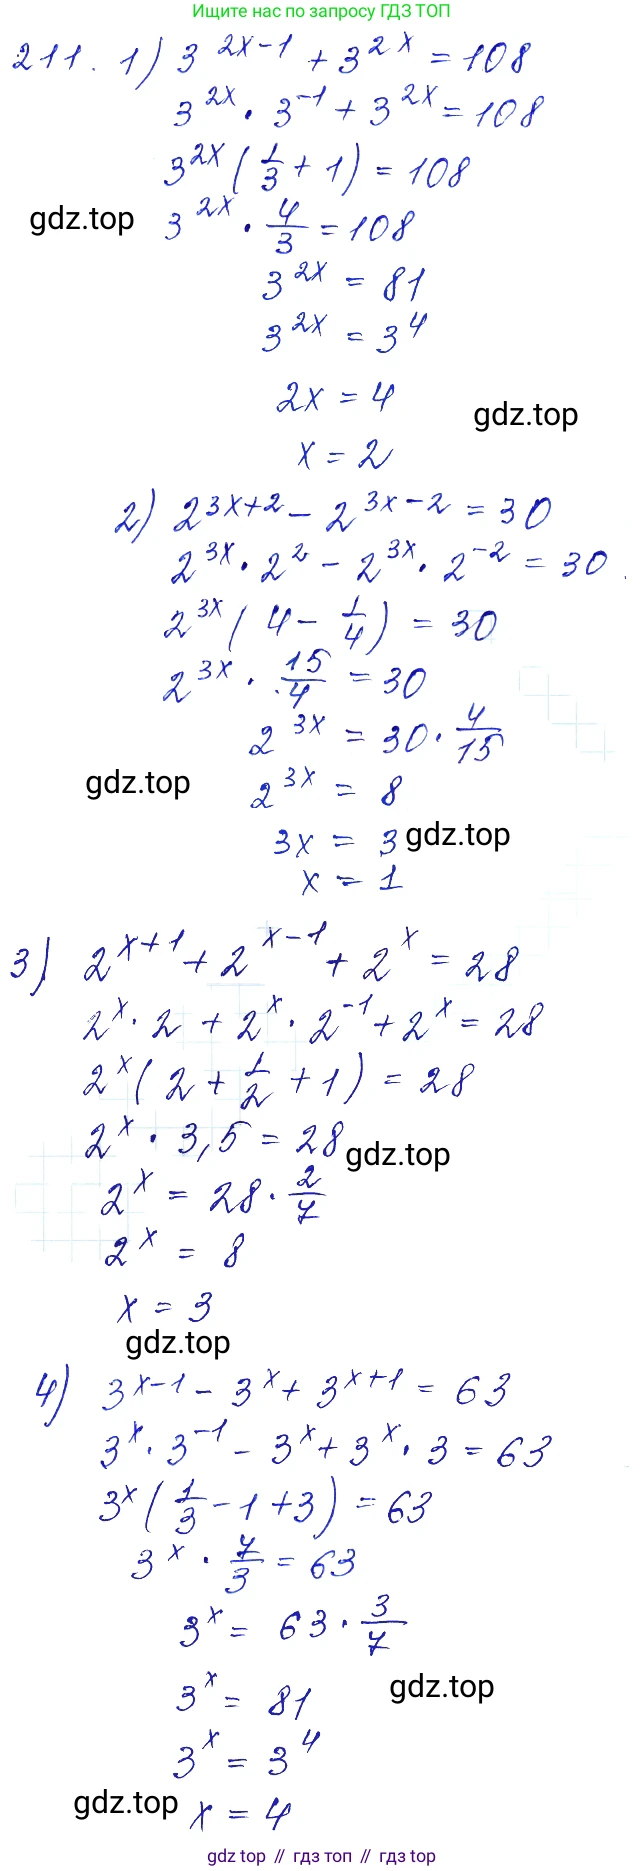 Ищите нас по запросу ГДЗ ТОП
211. 1) 3^{2x-1} + 3^{2x} = 108
3^{2x} · 3^{-1} + 3^{2x} = 108
3^{2x} (1/3 + 1) = 108
gdz.top 3^{2x} · 4/3 = 108
3^{2x} = 81
3^{2x} = 3^4
2x = 4
gdz.top
x = 2
2) 2^{3x+2} - 2^{3x-2} = 30
2^{3x} · 2^2 - 2^{3x} · 2^{-2} = 30
2^{3x} (4 - 1/4) = 30
2^{3x} · 15/4 = 30
2^{3x} = 30 · 4/15
gdz.top 2^{3x} = 8
3x = 3 gdz.top
x = 1
3) 2^{x+1} + 2^{x-1} + 2^x = 28
2^x · 2 + 2^x · 2^{-1} + 2^x = 28
2^x (2 + 1/2 + 1) = 28
2^x · 3,5 = 28 gdz.top
2^x = 28 · 2/7
2^x = 8
x = 3
gdz.top
4) 3^{x-1} - 3^x + 3^{x+1} = 63
3^x · 3^{-1} - 3^x + 3^x · 3 = 63
3^x (1/3 - 1 + 3) = 63
3^x · 7/3 = 63
3^x = 63 · 3/7
3^x = 81 gdz.top
3^x = 3^4
gdz.top x = 4
gdz top // гдз топ // gdz.top